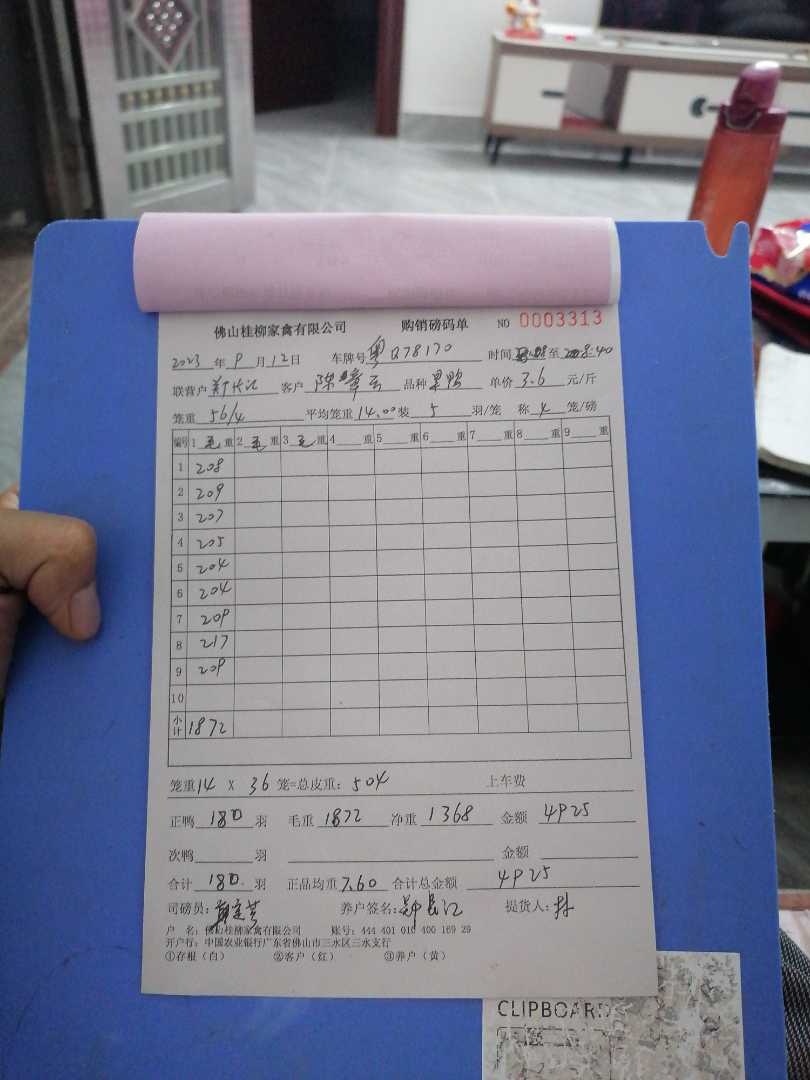 佛山桂柳家禽有限公司 购销磅码单 NO 0003313
2023 年 9 月 12 日 车牌号 粤Q78170 时间 至 8:40
联营户 客户 陈 云 品种 果鸭 单价 3.6 元/斤
笼重 56/4 平均笼重 14.00 装 5 羽/笼 称 4 笼/磅
编号 1 毛 重 2 毛 重 3 毛 重 4 重 5 重 6 重 7 重 8 重 9 重
1 208
2 209
3 207
4 205
5 204
6 204
7 209
8 217
9 209
10
小计 1872
笼重 14 X 36 笼=总皮重: 504 上车费
正鸭 180 羽 毛重 1872 净重 1368 金额 4925
次鸭 羽 金额
合计 180. 羽 正品均重 7.60 合计总金额 4925
司磅员: 养户签名: 提货人:
户 名: 佛山桂柳家禽有限公司 账号: 444 401 010 400 169 29
开户行: 中国农业银行广东省佛山市三水区三水支行
①存根（白） ②客户（红） ③养户（黄）
CLIPBOARD